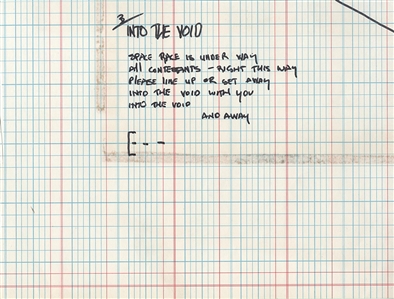 3
INTO THE VOID
SPACE RACE IS UNDER WAY
All CONTESTANTS - RIGHT THIS WAY
PLEASE LINE UP OR GET AWAY
INTO THE VOID WITH YOU
INTO THE VOID
AND AWAY
[- - -